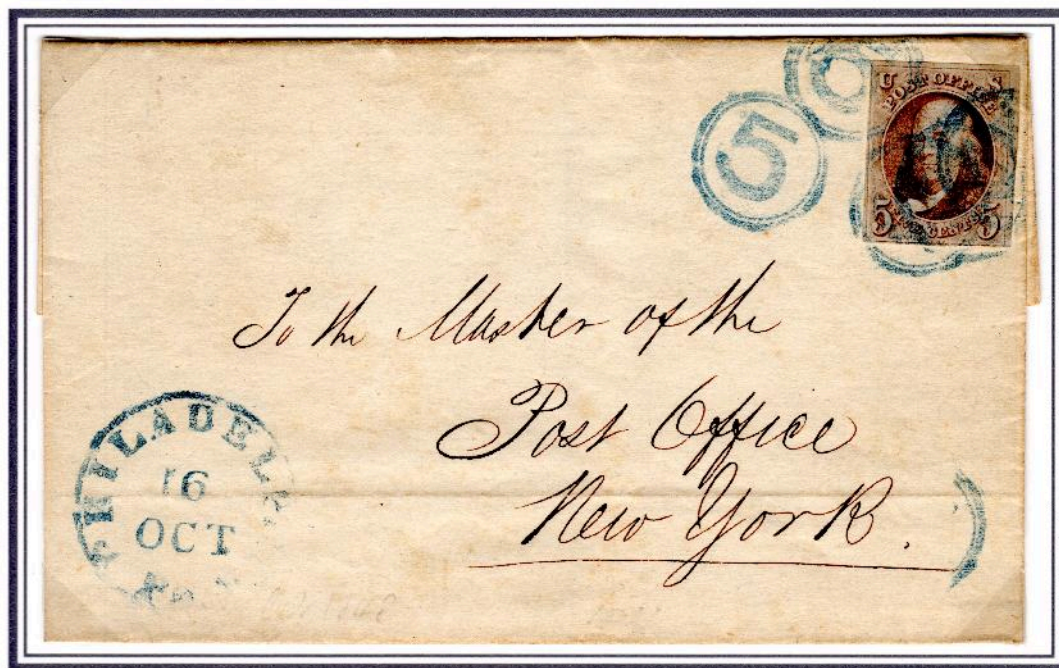 5
U S
POST OFFICE
FIVE CENTS
5 5
To the Master of the
Post Office
New York.
PHILADEL
16
OCT